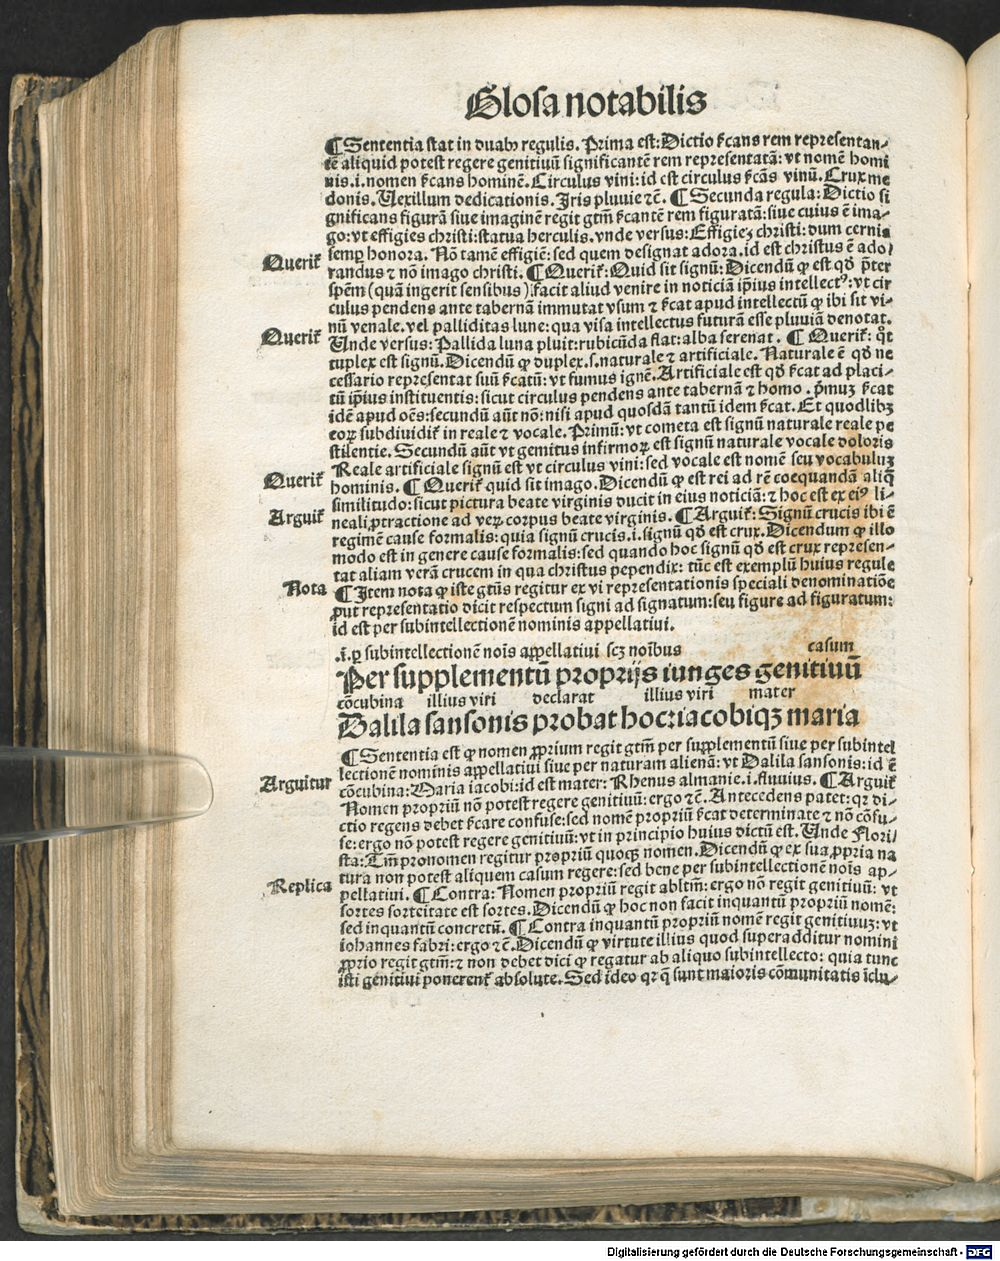 Glosa notabilis
¶Sententia stat in duabꝰ regulis. Prima est: Dictio ſcans rem representan⸗
tē aliquid potest regere genitiuū significantē rem representatā: vt nomē homi
nis .i. nomen ſcans hominē. Circulus vini: id est circulus ſcās vinū. Crux me
donis. Vexillum dedicationis. Iris pluuie ⁊c̄. ¶Secunda regula: Dictio si
gnificans figurā siue imaginē regit gtm̄ ſcantē rem figuratā: siue cuius ē ima⸗
go: vt effigies christi: statua herculis. vnde versus: Effigiēz christi: dum cernis
Querit̄
semꝑ honora. Nō tamē effigiē: sed quem designat adora. id est christus ē ado⸗
randus ⁊ nō imago christi. ¶Querit̄: Quid sit signū: Dicendū ꝙ est qd̄ p̄ter
spēm (quā ingerit sensibus) facit aliud venire in noticiā ip̄ius intellectꝰ: vt cir
culus pendens ante tabernā immutat vsum ⁊ ſcat apud intellectū ꝙ ibi sit vi⸗
nū venale. vel palliditas lune: qua visa intellectus futurā esse pluuiā denotat.
Querit̄
Unde versus: Pallida luna pluit: rubicūda flat: alba serenat. ¶Querit̄: q̊t
tuplex est signū. Dicendū ꝙ duplex .s. naturale ⁊ artificiale. Naturale ē qd̄ ne
cessario representat suū ſcatū: vt fumus ignē. Artificiale est qd̄ ſcat ad placi⸗
tū ip̄ius instituentis: sicut circulus pendens ante tabernā ⁊ homo. p̄muꝫ ſcat
idē apud oēs: secundū aūt nō: nisi apud quosdā tantū idem ſcat. Et quodlibꝫ
eoꝝ subdiuidit̄ in reale ⁊ vocale. Primū: vt cometa est signū naturale reale pe
stilentie. Secundū aūt vt gemitus infirmoꝝ est signū naturale vocale doloris
Reale artificiale signū est vt circulus vini: sed vocale est nomē seu vocabuluꝫ
Querit̄
hominis. ¶Querit̄ quid sit imago. Dicendū ꝙ est rei ad rē coequandā aliq̄
similitudo: sicut pictura beate virginis ducit in eius noticiā: ⁊ hoc est ex eiꝰ li⸗
Arguit̄
neali ꝓtractione ad veꝝ corpus beate virginis. ¶Arguit̄: Signū crucis ibi ē
regimē cause formalis: quia signū crucis .i. signū qd̄ est crux. Dicendum ꝙ illo
modo est in genere cause formalis: sed quando hoc signū qd̄ est crux represen⸗
tat aliam verā crucem in qua christus pependit: tūc est exemplū huius regule
Nota
¶Item nota ꝙ iste gtūs regitur ex vi representationis speciali denominatiōe
ꝓut representatio dicit respectum signi ad signatum: seu figure ad figuratum:
id est per subintellectionē nominis appellatiui.
.i. ꝑ subintellectionē nois appellatiui scꝫ noibus casum
Per supplementū proprijs iunges genitiuū
cōcubina illius viri declarat illius viri mater
Dalila sansonis probat hoc: iacobiqꝫ maria
¶Sententia est ꝙ nomen ꝓprium regit gtm̄ per supplementū siue per subintel
lectionē nominis appellatiui siue per naturam alienā: vt Dalila sansonis: id ē
Arguitur
cōcubina: Maria iacobi: id est mater: Rhenus almanie .i. fluuius. ¶Arguit̄
Nomen propriū nō potest regere genitiuū: ergo ⁊c̄. Antecedens patet: qꝛ di⸗
ctio regens debet ſcare confuse: sed nomē propriū ſcat determinate ⁊ nō cōfu⸗
se: ergo nō potest regere genitiuū: vt in principio huius dictū est. Unde Flori
sta: Tm̄ pronomen regitur propriū quoqꝫ nomen. Dicendū ꝙ ex sua ꝓpria na
tura non potest aliquem casum regere: sed bene per subintellectionē nois ap⸗
Replica
pellatiui. ¶Contra: Nomen propriū regit abltm̄: ergo nō regit genitiuū: vt
sortes sorteitate est sortes. Dicendū ꝙ hoc non facit inquantū propriū nomē:
sed inquantū concretū. ¶Contra inquantū propriū nomē regit genitiuuꝫ: vt
iohannes fabri: ergo ⁊c̄. Dicendū ꝙ virtute illius quod superadditur nomini
ꝓprio regit gtm̄: ⁊ non debet dici ꝙ regatur ab aliquo subintellecto: quia tunc
isti genitiui ponerent̄ absolute. Sed ideo qꝛ q̄ sunt maioris cōmunitatis īclu⸗
Digitalisierung gefördert durch die Deutsche Forschungsgemeinschaft - DFG